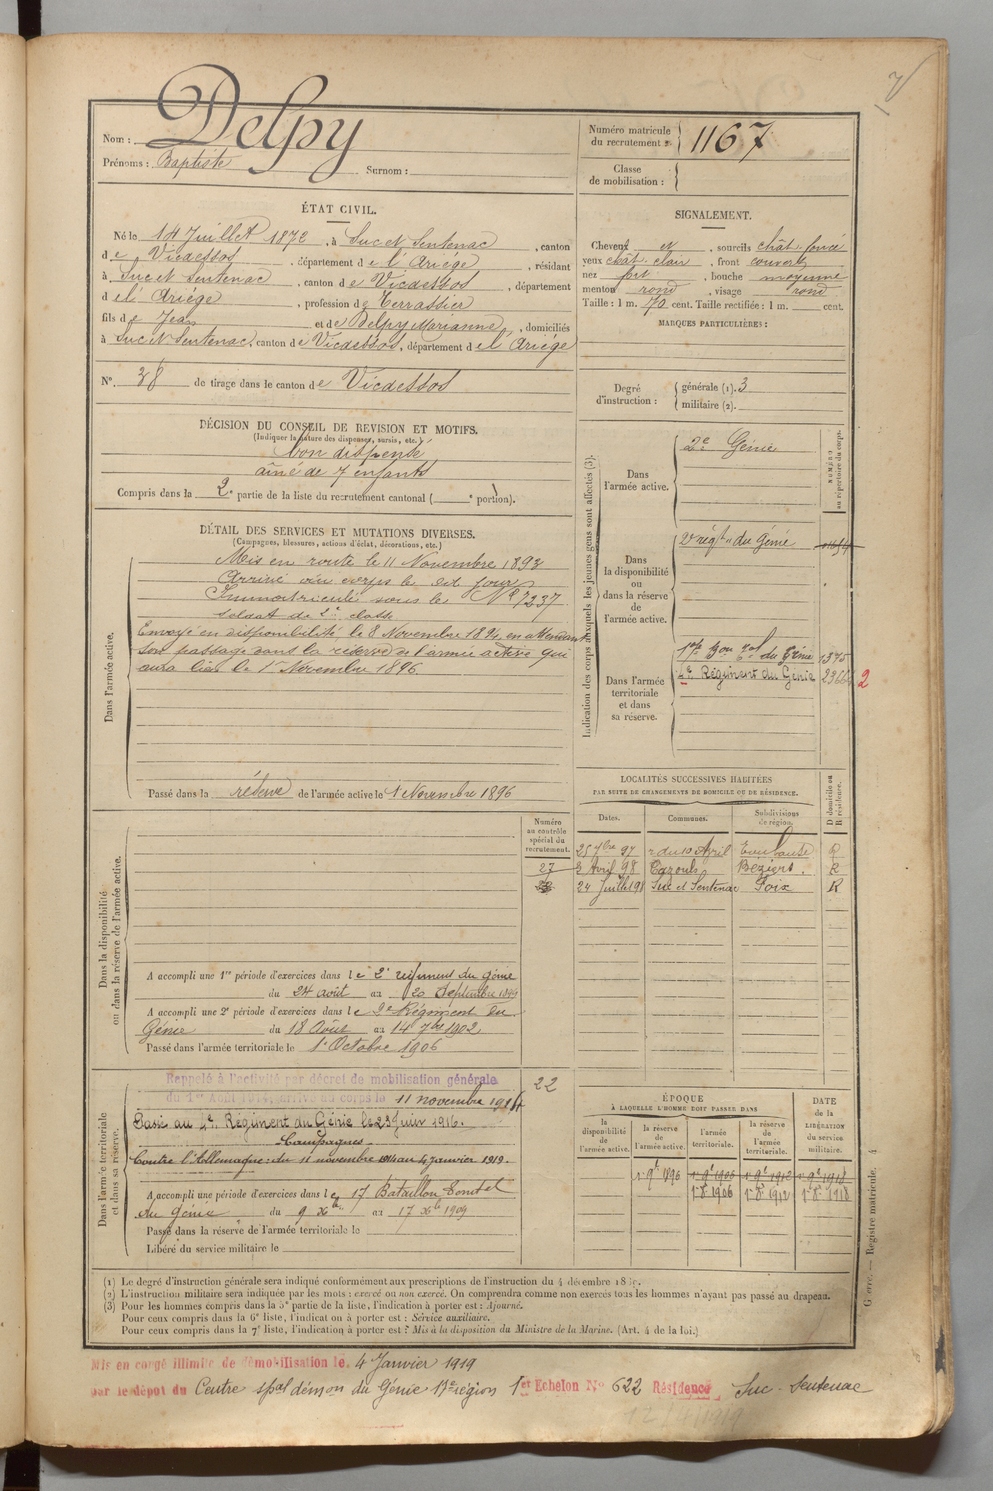 Nom : Delpy
Prénoms : Baptiste Surnom :
Numéro matricule du recrutement : 1167
Classe de mobilisation :
ÉTAT CIVIL.
Né le 14 Juillet 1872, à Suc et Sentenac, canton
de Vicdessos, département de l'Ariége, résidant
à Suc et Sentenac, canton de Vicdessos, département
d el' Ariége, profession de Terrassier
fils de Jean et de Delpy Marianne, domiciliés
à Suc et Sentenac, canton de Vicdessos, département d el' Ariége
N°. 38 de tirage dans le canton de Vicdessos
SIGNALEMENT.
Cheveux et, sourcils chât. foncé
yeux chât. clair, front couvert
nez fort, bouche moyenne
menton rond, visage rond
Taille : 1 m. 70 cent. Taille rectifiée : 1 m. cent.
MARQUES PARTICULIÈRES :
Degré d'instruction : générale (1). 3
militaire (2).
DÉCISION DU CONSEIL DE REVISION ET MOTIFS.
(Indiquer la nature des dispenses, sursis, etc.)
bon dispensé
aîné de 7 enfants
Compris dans la 2e partie de la liste du recrutement cantonal ( e portion).
DÉTAIL DES SERVICES ET MUTATIONS DIVERSES.
(Campagnes, blessures, actions d'éclat, décorations, etc.)
Dans l'armée active.
Mis en route le 11 Novembre 1893
Arrivé au corps le dit jour
Immatriculé sous le N° 7237
soldat de 2e classe
Envoyé en disponibilité le 8 Novembre 1894, en attendant
son passage dans la réserve de l'armée active qui
aura lieu le 1er Novembre 1896.
Passé dans la réserve de l'armée active le 1 Novembre 1896
Indication des corps auxquels les jeunes gens sont affectés (3).
NUMÉRO au répertoire du corps.
Dans l'armée active.
2e Génie
Dans la disponibilité ou dans la réserve de l'armée active.
2e régt du Génie
Dans l'armée territoriale et dans sa réserve.
17e Bon Tal du Génie 1375
4e Régiment du Génie 2
LOCALITÉS SUCCESSIVES HABITÉES
PAR SUITE DE CHANGEMENTS DE DOMICILE OU DE RÉSIDENCE.
Dates. Communes. Subdivisions de région. D domicile ou R résidence.
25 7bre 97 r du 10 Avril Toulouse R
2 Avril 98 Cazouls Béziers. R
24 Juillet 98 Suc et Sentenac Foix R
Numéro au contrôle spécial du recrutement.
27
Dans la disponibilité ou dans la réserve de l'armée active.
A accompli une 1re période d'exercices dans le 2e régiment du génie
du 24 août au 20 Septembre 1899
A accompli une 2e période d'exercices dans le 2e Régiment du
Génie du 18 Août au 14 7bre 1902
Passé dans l'armée territoriale le 1er Octobre 1906
Dans l'armée territoriale et dans sa réserve.
22
Rappelé à l'activité par décret de mobilisation générale
du 1er Août 1914, arrivé au corps le 11 novembre 1914
Passé au 4e Régiment du Génie le 23 Juin 1916.
Campagnes
Contre l'Allemagne: du 11 novembre 1914 au 4 janvier 1919.
A accompli une période d'exercices dans le 17 Bataillon Territal
du Génie du 9 Xbre au 17 Xbre 1909
Passé dans la réserve de l'armée territoriale le
Libéré du service militaire le
ÉPOQUE
À LAQUELLE L'HOMME DOIT PASSER DANS
la disponibilité de l'armée active. la réserve de l'armée active. l'armée territoriale. la réserve de l'armée territoriale.
DATE de la LIBÉRATION du service militaire.
1er 9bre 1896 1er 9bre 1906 1er 9bre 1912 1er 9bre 1918
1er 8bre 1906 1er 8bre 1912 1er 8bre 1918
Guerre. — Registre matricule. 4
(1) Le degré d'instruction générale sera indiqué conformément aux prescriptions de l'instruction du 4 décembre
(2) L'instruction militaire sera indiquée par les mots : exercé ou non exercé. On comprendra comme non exercés tous les hommes n'ayant pas passé au drapeau.
(3) Pour les hommes compris dans la 5e partie de la liste, l'indication à porter est : Ajourné.
Pour ceux compris dans la 6e liste, l'indication à porter est : Service auxiliaire.
Pour ceux compris dans la 7e liste, l'indication à porter est : Mis à la disposition du Ministre de la Marine. (Art. 4 de la loi.)
Mis en congé illimité de démobilisation le. 4 Janvier 1919
par le dépôt du Centre spal démon du Génie 17e région 1er Echelon No 622 Résidence Suc-Sentenac
12/4/1919